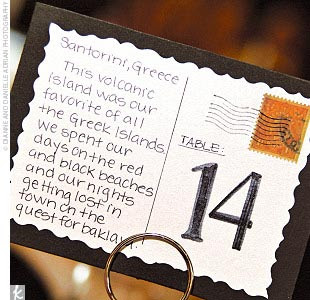 Santorini, Greece
This volcanic
island was our
favorite of all
the Greek Islands.
We spent our
days on the red
and black beaches
and our nights
getting lost in
town on the
quest for baklava!
TABLE:
14
© DIANNE AND DANIELLE ADRIAN PHOTOGRAPHY
k